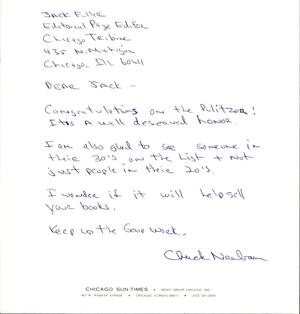 Jack Fuller
Editorial Page Editor
Chicago Tribune
435 N. Michigan
Chicago, IL 60611
Dear Jack -
Congratulations on the Pulitzer!
It's a well deserved honor.
I am also glad to see someone in
their 30's on the list + not
just people in their 20's.
I wonder if it will help sell
your books.
Keep up the Good work.
Chuck
CHICAGO SUN-TIMES • NEWS GROUP CHICAGO, INC.
401 N. WABASH AVENUE • CHICAGO, ILLINOIS 60611 • (312) 321-3000